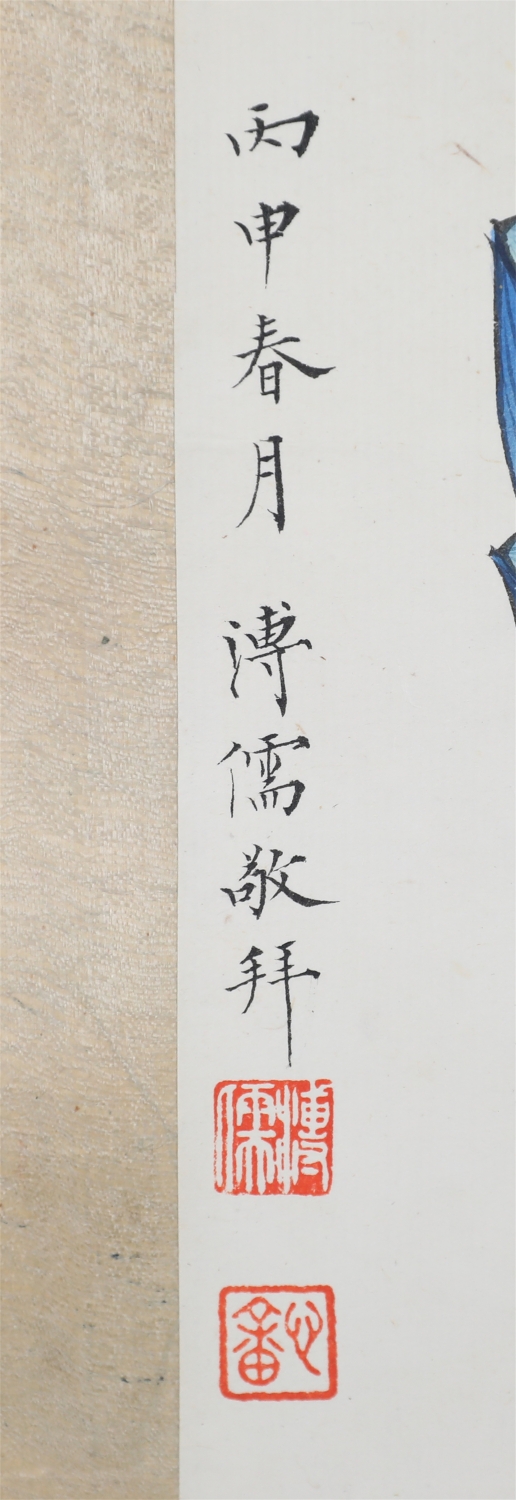 丙申春月溥儒敬拜
溥儒
心畬